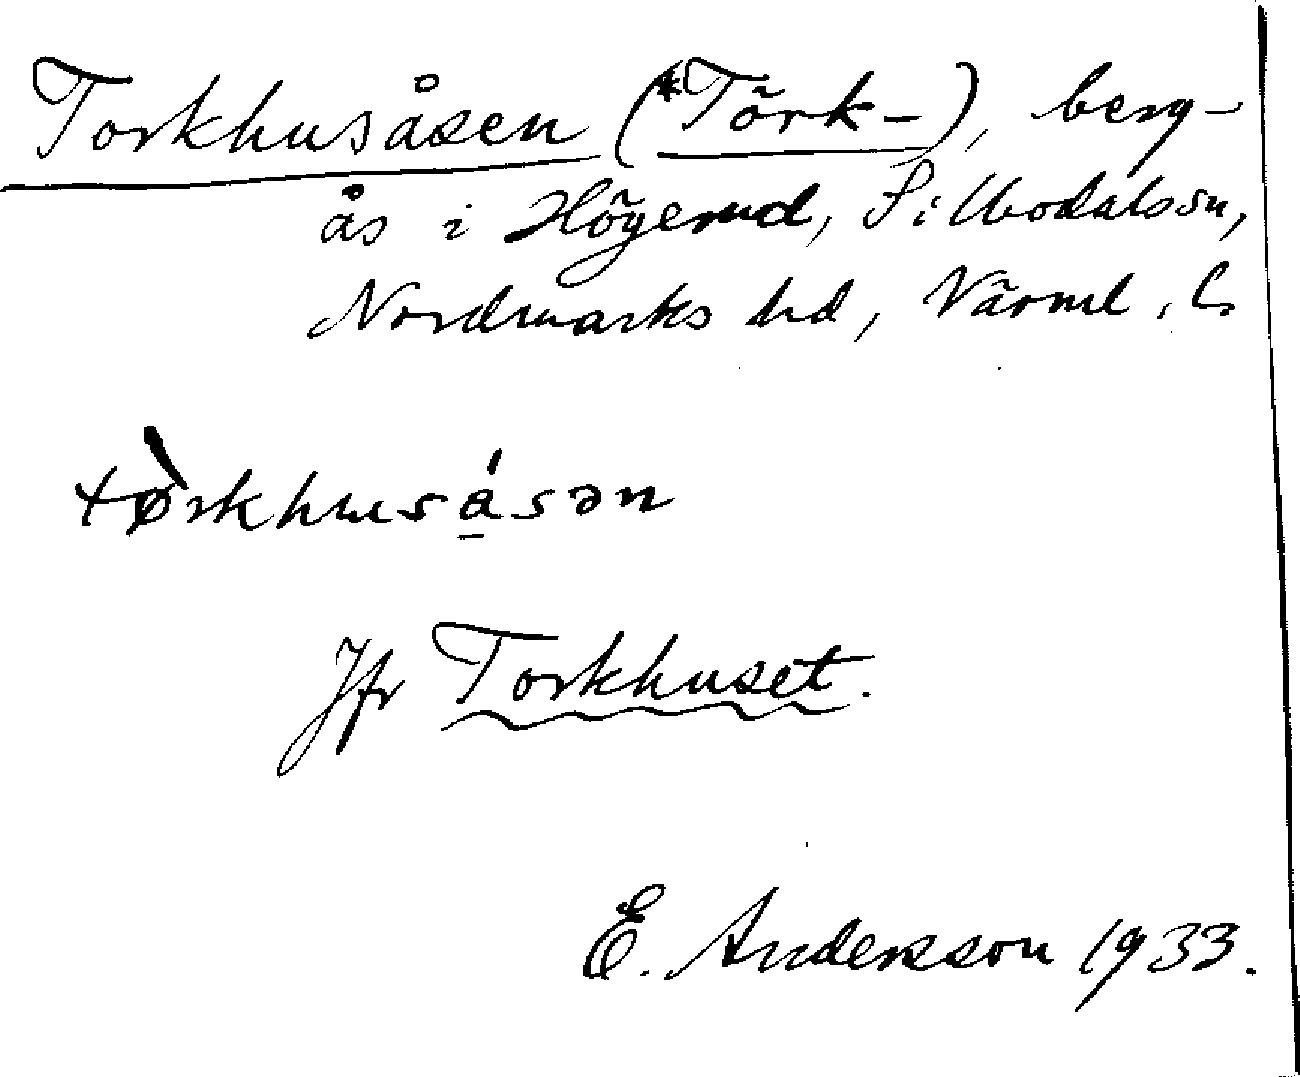 Torkhusåsen (*Törk-), berg-
ås i Högerud, Silbodals sn,
Nordmarks hd, Värml. l.
tø̀rkhusá̱sən
Jfr Torkhuset.
E. Andersson 1933.